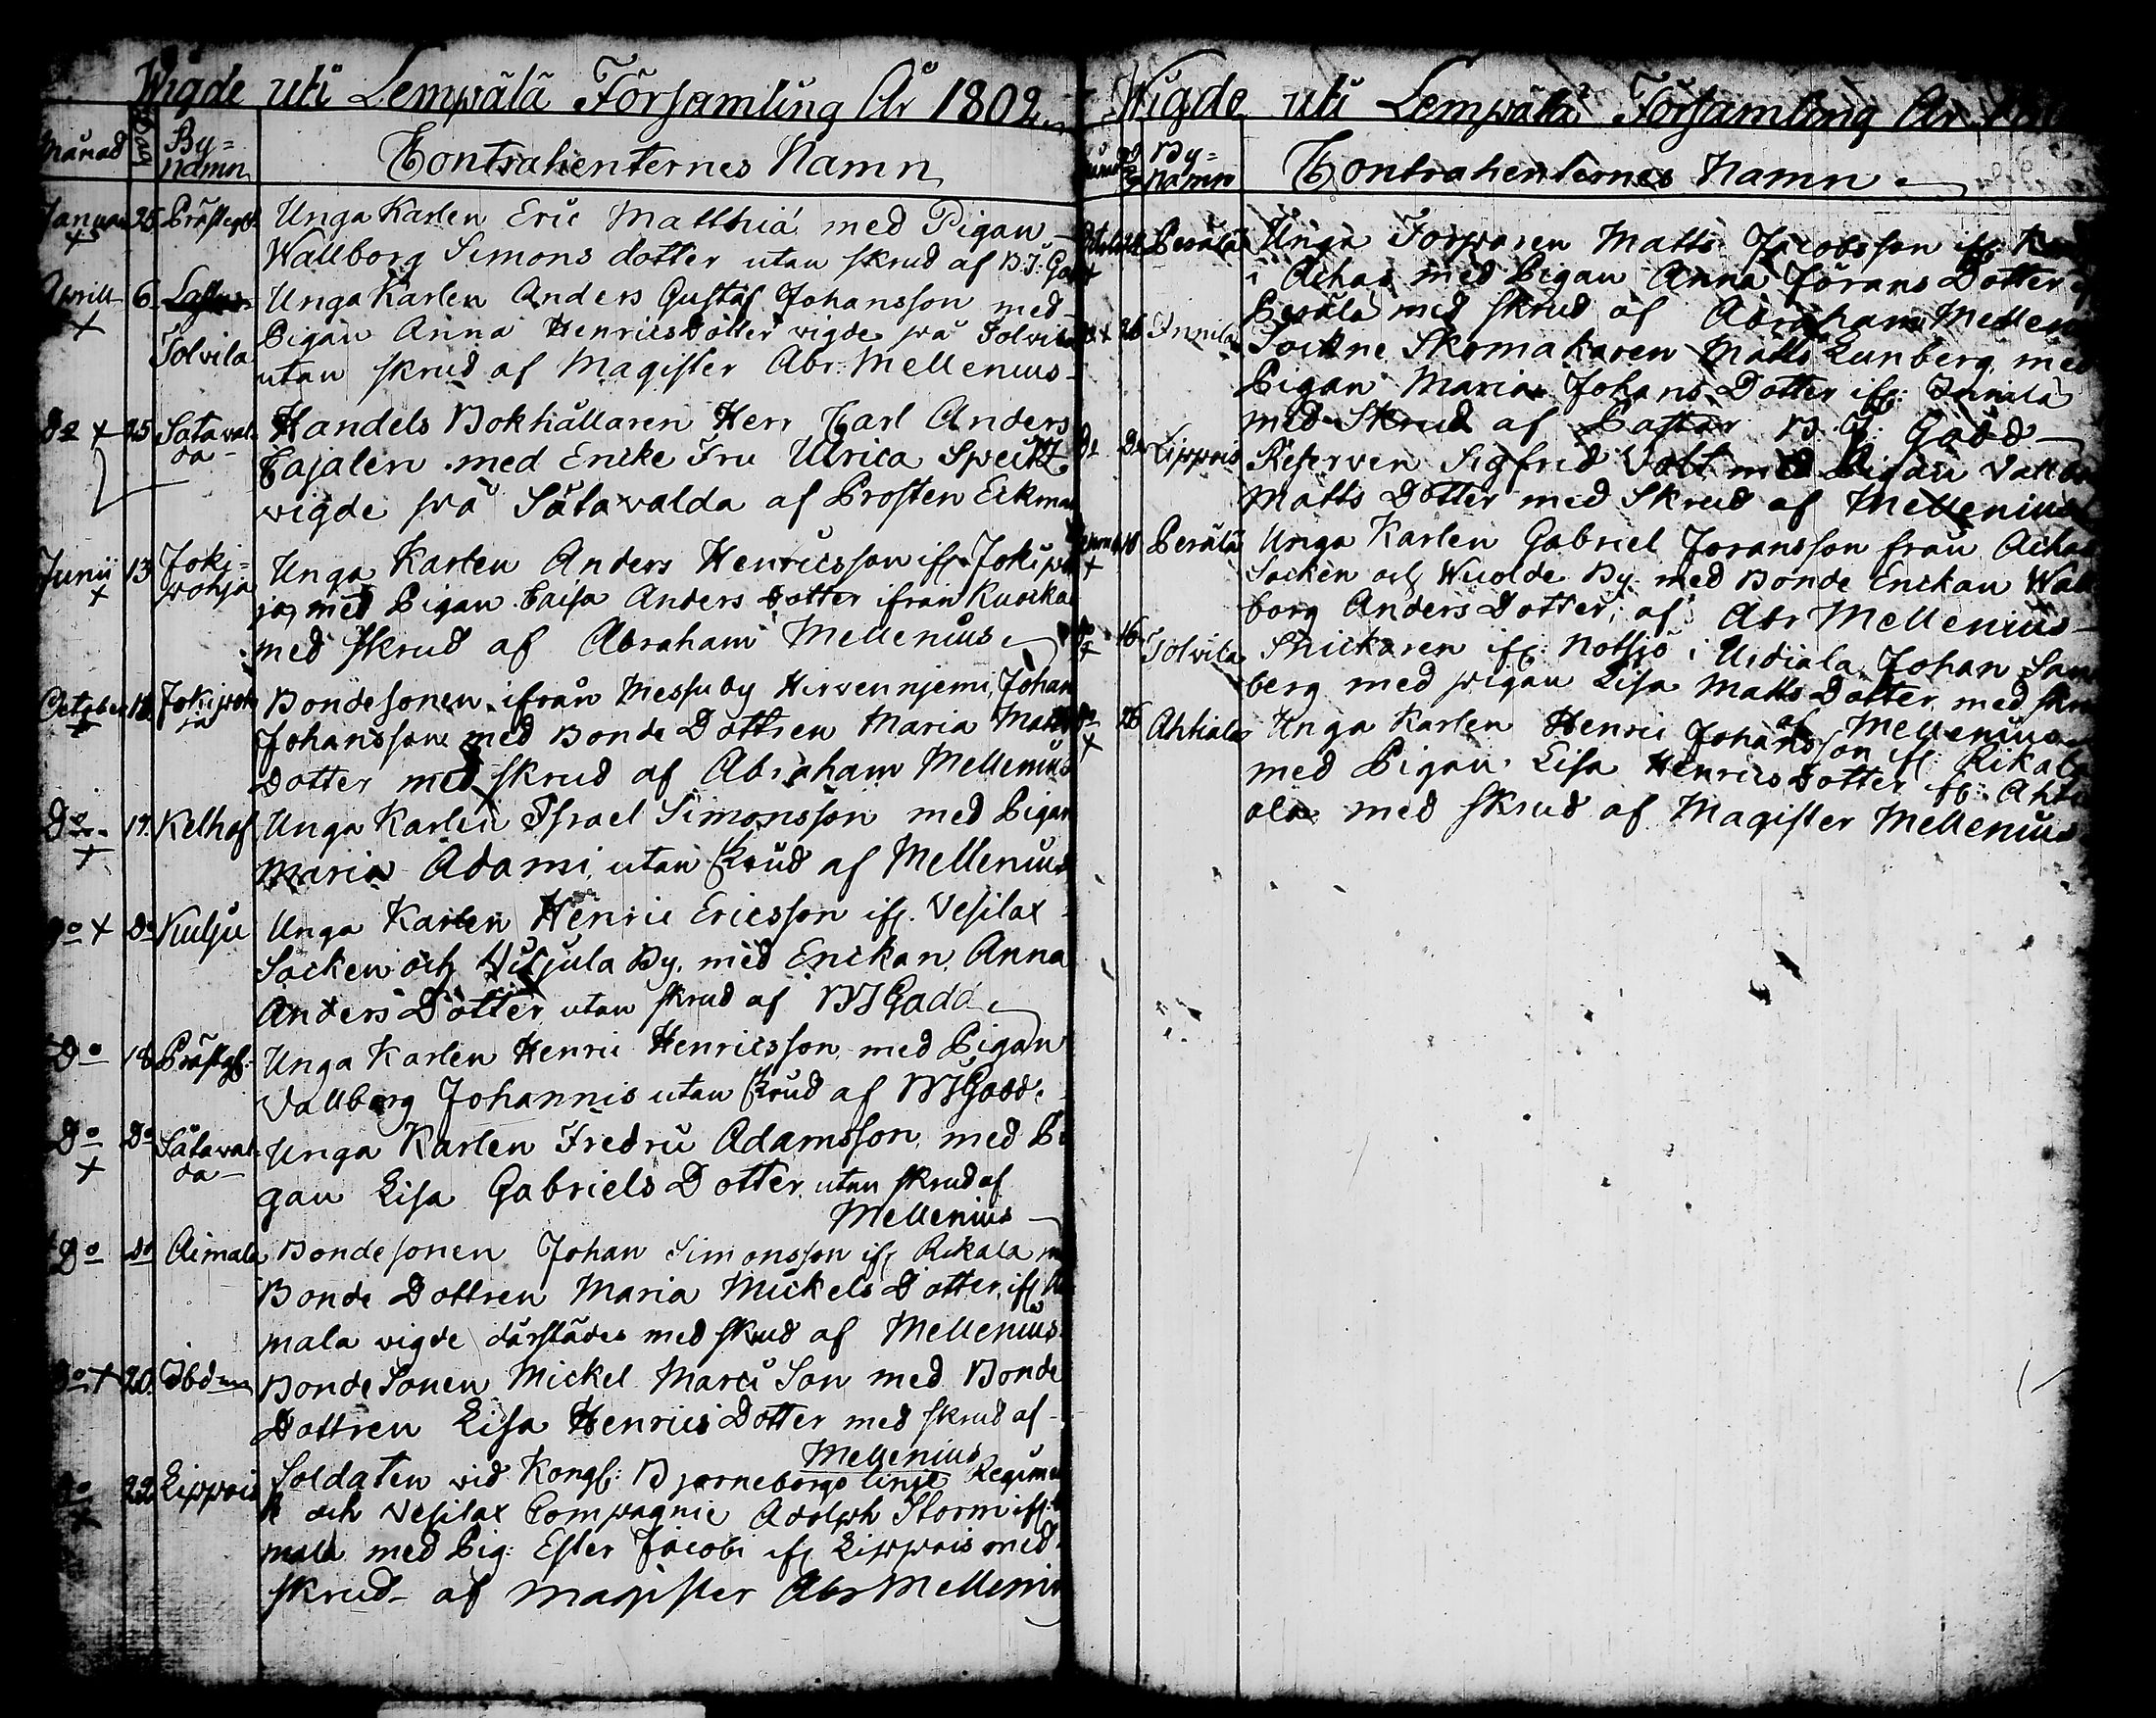 Wigde uti Lempälä Församling År 1802
Månad Dag By=namn Contrahenternes Namn
Januari 25 Prästegd. Unga Karlen Eric Matthiæ med Pigan
Wallborg Simons dotter utan skrud af B.J. Ga
Aprill 6 Unga Karlen Anders Gustaf Johansson med
Tolvila Pigan Anna Henrics Dotter vigde på Tolvila
utan skrud af Magister Abr. Mellenius
Do 25 Sataval Handels Bokhållaren Herr Carl Anders
da Cajalen med Encke Fru Ulrica Speitz
vigde på Sätavalda af Prosten Eckman
Junii 13 Joki= Unga Karlen Anders Henricsson ifr. Jokipo
pohja ja, med Pigan Caisa Anders Dotter ifrån Kuocka
med skrud af Abraham Mellenius
October Jokipoh Bondesonen ifrån Messuby Hirvennjemi, Johan
ja Johansson med Bonde Dottren Maria Matts
Dotter med skrud af Abraham Mellenius
Do 17 Kelhos Unga Karlen Israel Simonsson med Pigan
Maria Adami, utan skrud af Mellenius
Do Do Kulju Unga Karlen Henric Ericsson ifr. Vesilax
Socken och By, med Enckan Anna
Anders Dotter utan skrud af BJ Gadd
Do 18 Prästgd: Unga Karlen Henric Henricsson med Pigan
Vallborg Johannis utan skrud af BJ Gadd
Do Do Sätaval Unga Karlen Fredric Adamsson med Pi
da gan Lisa Gabriels Dotter utan skrud af
Mellenius
Do Do Aimala Bondesonen Johan Simonsson ifr Rikala m
Bonde Dottren Maria Mickels Dotter, ifr A
mala vigde därstädes med skrud af Mellenius
Do 20 Ibdm Bonde Sonen Mickel Marci Son med Bonde
Dottren Lisa Henrics Dotter med skrud af
Mellenius
Do 22 Lippois Soldaten vid Kongl: Bjorneborgs linje Regimen
och Vesilax Compagnie Adolph Storm ifr.
mala med Pig: Ester Jacobi ifr Lippois med
skrud af Magister Abr Mellenius
Wigde uti Lempälä Församling År
By=namn Contrahenternes Namn
Perälä Unga Torparen Matts Jacobsson ifr
i Achas med Pigan Anna Jörans Dotter
Perälä med skrud af Abraham Mellen
26 Innila Sockne Skomakaren Matts Lunberg med
Pigan Maria Johans Dotter ifr: Innila
med Skrud af Pastor B. J. Gadd
Do Do Lippois Reserven Sigfrid Volt med Pigan Vallbor
Matts Dotter med Skrud af Mellenius
Perälä Unga Karlen Gabriel Joransson från Achas
Socken och Wuolde By med Bonde Enckan Wall
borg Anders Dotter, af Abr Mellenius
Do 16 Tolvila Snickaren ifr: Notsjö i Urdiala Johan San
berg med pigan Lisa Matts Dotter, med skru
af Mellenius
Do 26 Ahtiala Unga Karlen Henric Johansson ifr: Rikala
med Pigan Lisa Henrics Dotter ifr: Ahti
ala med skrud af Magister Mellenius